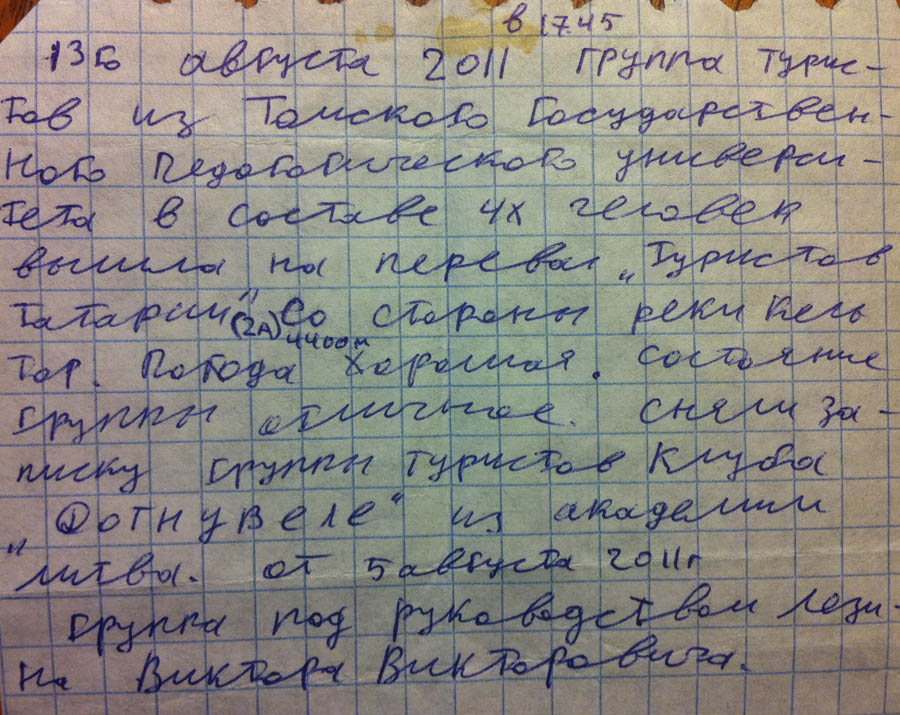 в 17.45
13го августа 2011 группа турис-
тов из Томского Государствен-
ного педогогического универси-
тета в составе 4х человек
вышла на перевал „Туристов
Татарии" (2А) 4400м Со стороны реки Кель
Тор. Погода хорошая. Состояние
группы отличное. Сняли за-
писку группы туристов Клуба
„Фотнувеле" из академии
литва. от 5 августа 2011г
Группа под руководством Лези-
на Виктора Викторовича.